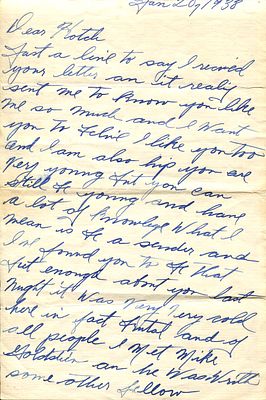 Jan 20, 1938
Dear Hotch
Just a line to say I recived
your letter an it realy
sent me to know you like
me so much and I want
you to I like you too
and I am also hip you are
very young but you can
still be young and have
a lot of knowlege What I
mean is be a sender and
I've found you to be that
but enough about you last
night it was very very cold
here in fact brutal and of
all people I met Mike
an he was with
some other fellow